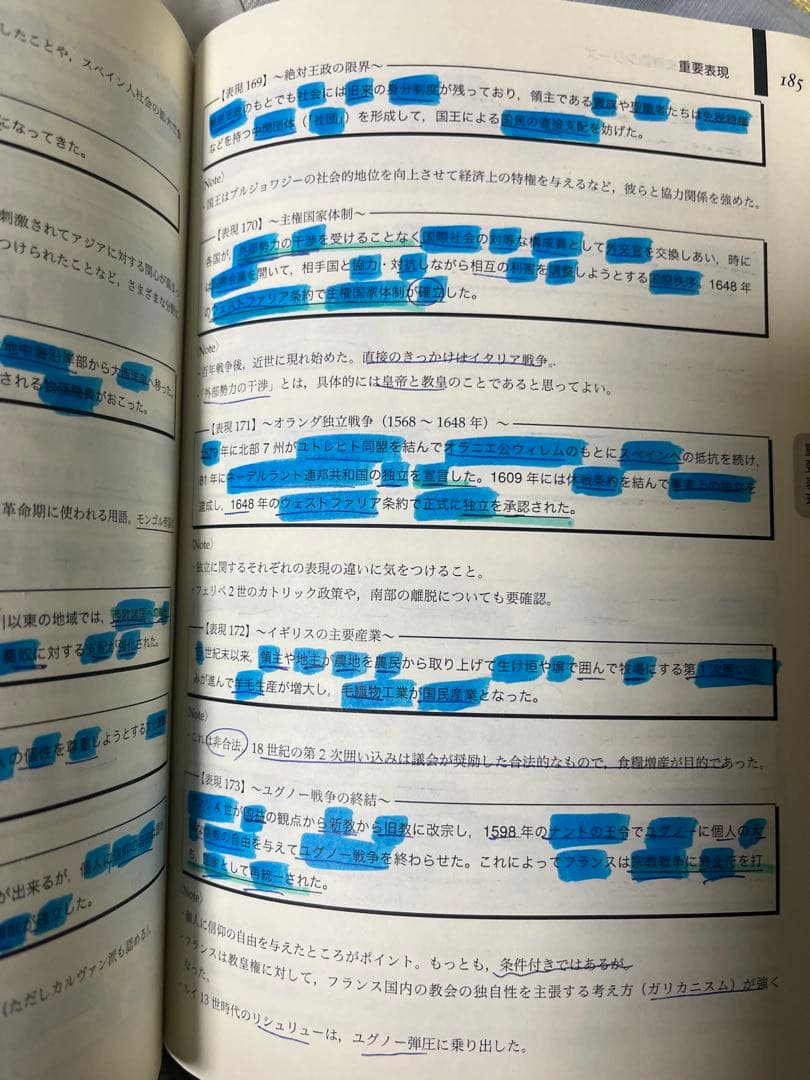 したことや、スペイン人社会の拡大で
になってきた。
刺激されてアジアに対する関心が高ま
つけられたことなど、さまざまな
地中海沿岸部から大西洋岸へ移った
される物価騰貴がおこった。
革命期に使われる用語。モンゴル帝国
川以東の地域では、西欧諸国への
農奴に対する支配が強化された。
人の個性を尊重しようとする
が出来るが、個人に信仰の自由
が確立した。
(ただしカルヴァン派も認める)。
重要表現
185
【表現 169】〜絶対王政の限界〜
絶対王政のもとでも社会には旧来の身分制度が残っており、領主である貴族や聖職者たちは免税特権
などを持つ中間団体(「社団」)を形成して、国王による国民の直接支配を妨げた。
(Note)
・国王はブルジョワジーの社会的地位を向上させて経済上の特権を与えるなど、彼らと協力関係を強めた。
【表現 170】〜主権国家体制〜
各国が、外部勢力の干渉を受けることなく国際社会の対等な構成員として外交官を交換しあい、時に
は国際会議を開いて、相手国と協力・対抗しながら相互の利害を調整しようとする国際秩序。1648 年
のウェストファリア条約で主権国家体制が確立した。
(Note)
・百年戦争後、近世に現れ始めた。直接のきっかけはイタリア戦争。
・「外部勢力の干渉」とは、具体的には皇帝と教皇のことであると思ってよい。
【表現 171】〜オランダ独立戦争(1568 〜 1648 年)〜
1579 年に北部 7 州がユトレヒト同盟を結んでオラニエ公ウィレムのもとにスペインへの抵抗を続け、
81 年にネーデルラント連邦共和国の独立を宣言した。1609 年には休戦条約を結んで事実上の独立を
達成し、1648 年のウェストファリア条約で正式に独立を承認された。
(Note)
・独立に関するそれぞれの表現の違いに気をつけること。
・フェリペ 2 世のカトリック政策や、南部の離脱についても要確認。
【表現 172】〜イギリスの主要産業〜
世紀末以来、領主や地主が農地を農民から取り上げて生け垣や塀で囲んで牧場にする第 1 次囲い込
みが進んで羊毛生産が増大し、毛織物工業が国民産業となった。
(Note)
・これは非合法。18 世紀の第 2 次囲い込みは議会が奨励した合法的なもので、食糧増産が目的であった。
【表現 173】〜ユグノー戦争の終結〜
アンリ 4 世が国益の観点から新教から旧教に改宗し、1598 年のナントの王令でユグノーに個人の大
幅な信教の自由を与えてユグノー戦争を終わらせた。これによってフランスは宗教戦争に終止符を打
ち、国家として再統一された。
(Note)
・個人に信仰の自由を与えたところがポイント。もっとも、条件付きではあるが。
・フランスは教皇権に対して、フランス国内の教会の独自性を主張する考え方(ガリカニスム)が強く
なった。
・ルイ 13 世時代のリシュリューは、ユグノー弾圧に乗り出した。